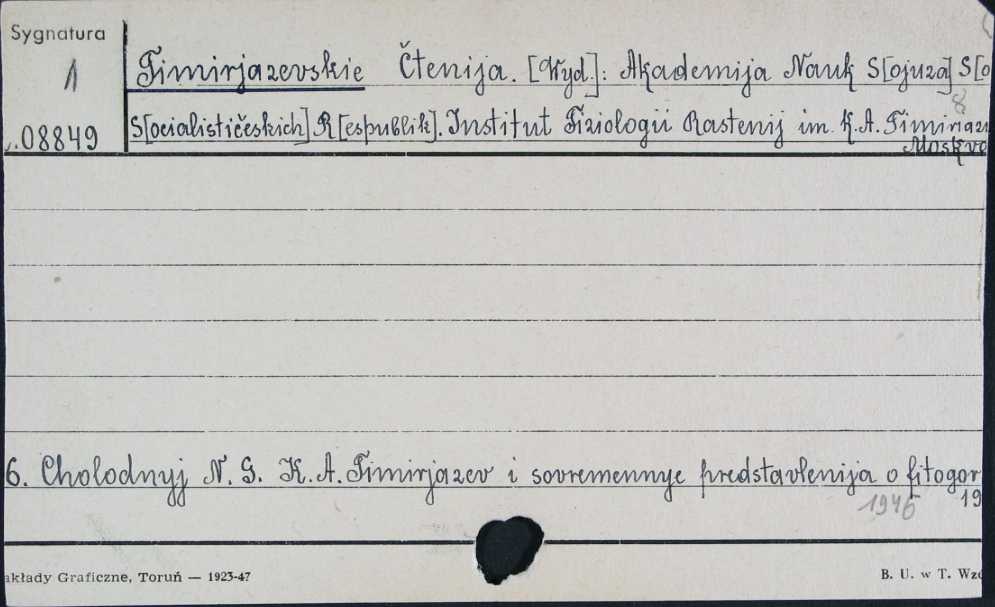 Sygnatura
1
08849
Timirjazevskie Čtenija. [Wyd.]: Akademija Nauk S[ojuza] S[o
8
S[ocialističeskich] R[espublik]. Institut Fiziologii Rastenij im. K.A. Timirjaz
Moskve
6. Cholodnyj N. G. K. A. Timirjazev i sovremennye predstavlenija o fitogor
1946
19
akłady Graficzne, Toruń — 1923-47
B. U. w T. Wzó